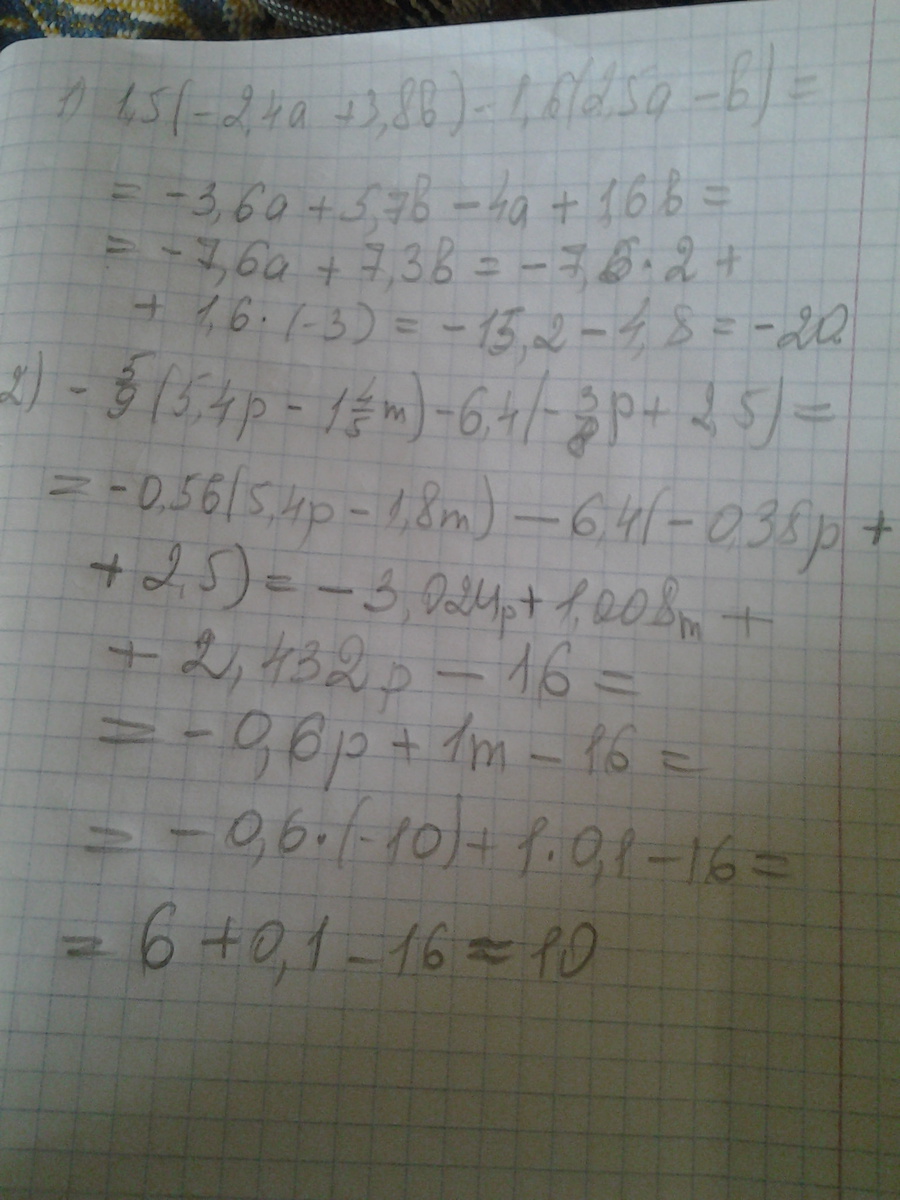 1) 1,5(-2,4a+3,8b)-1,6(2,5a-b)=
= -3,6a+5,7b-4a+1,6b=
= -7,6a+7,3b=-7,6·2+
+ 1,6·(-3)=-15,2-4,8=-20.
2) -5/9(5,4p-1 4/5m)-6,4(-3/8p+2,5)=
= -0,56(5,4p-1,8m)-6,4(-0,38p+
+2,5)=-3,024p+1,008m+
+2,432p-16=
= -0,6p+1m-16=
= -0,6·(-10)+1·0,1-16=
= 6+0,1-16≈10